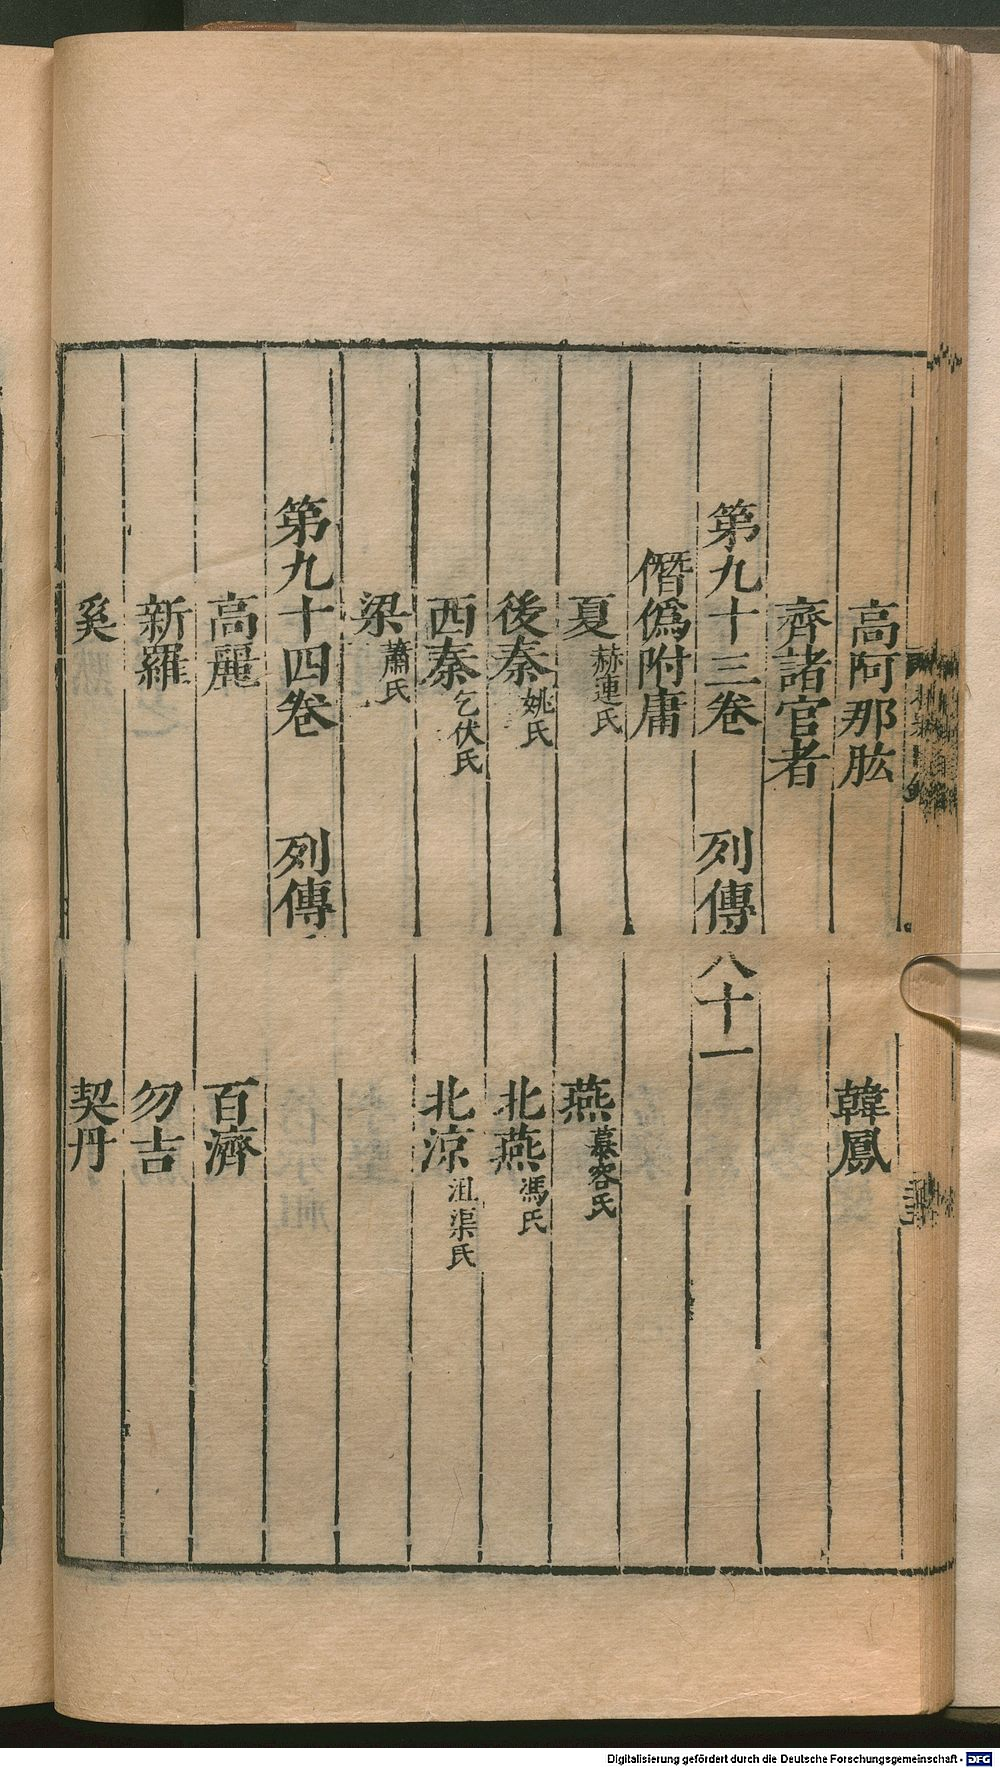 高阿那肱　韓鳳
齊諸官者
第九十三卷　列傳八十一
僭僞附庸
夏赫連氏　燕慕容氏
後秦姚氏　北燕馮氏
西秦乞伏氏　北涼沮渠氏
梁蕭氏
第九十四卷　列傳
高麗　百濟
新羅　勿吉
奚　契丹
Digitalisierung gefördert durch die Deutsche Forschungsgemeinschaft - DFG